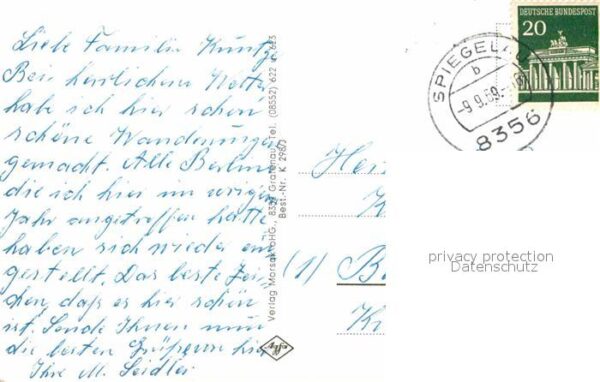 Liebe Familie Kuntze
Bei herrlichem Wetter
habe ich hier schon
schöne Wanderungen
gemacht. Alle Berliner
die ich hier im vorigen
Jahr angetroffen hatte
haben sich wieder ein
gestellt. Das beste Zei-
chen, daß es hier schön
ist. Sende Ihnen nun
die besten Grüße von hier
Ihre M. Seidler
Verlag Morsak oHG, 8352 Grafenau, Tel. (08552) 622 u. 623
Best.-Nr. K 296/
Agfa
DEUTSCHE BUNDESPOST
20
SPIEGELAU
b
-9.9.69
8356
(1) B
privacy protection
Datenschutz